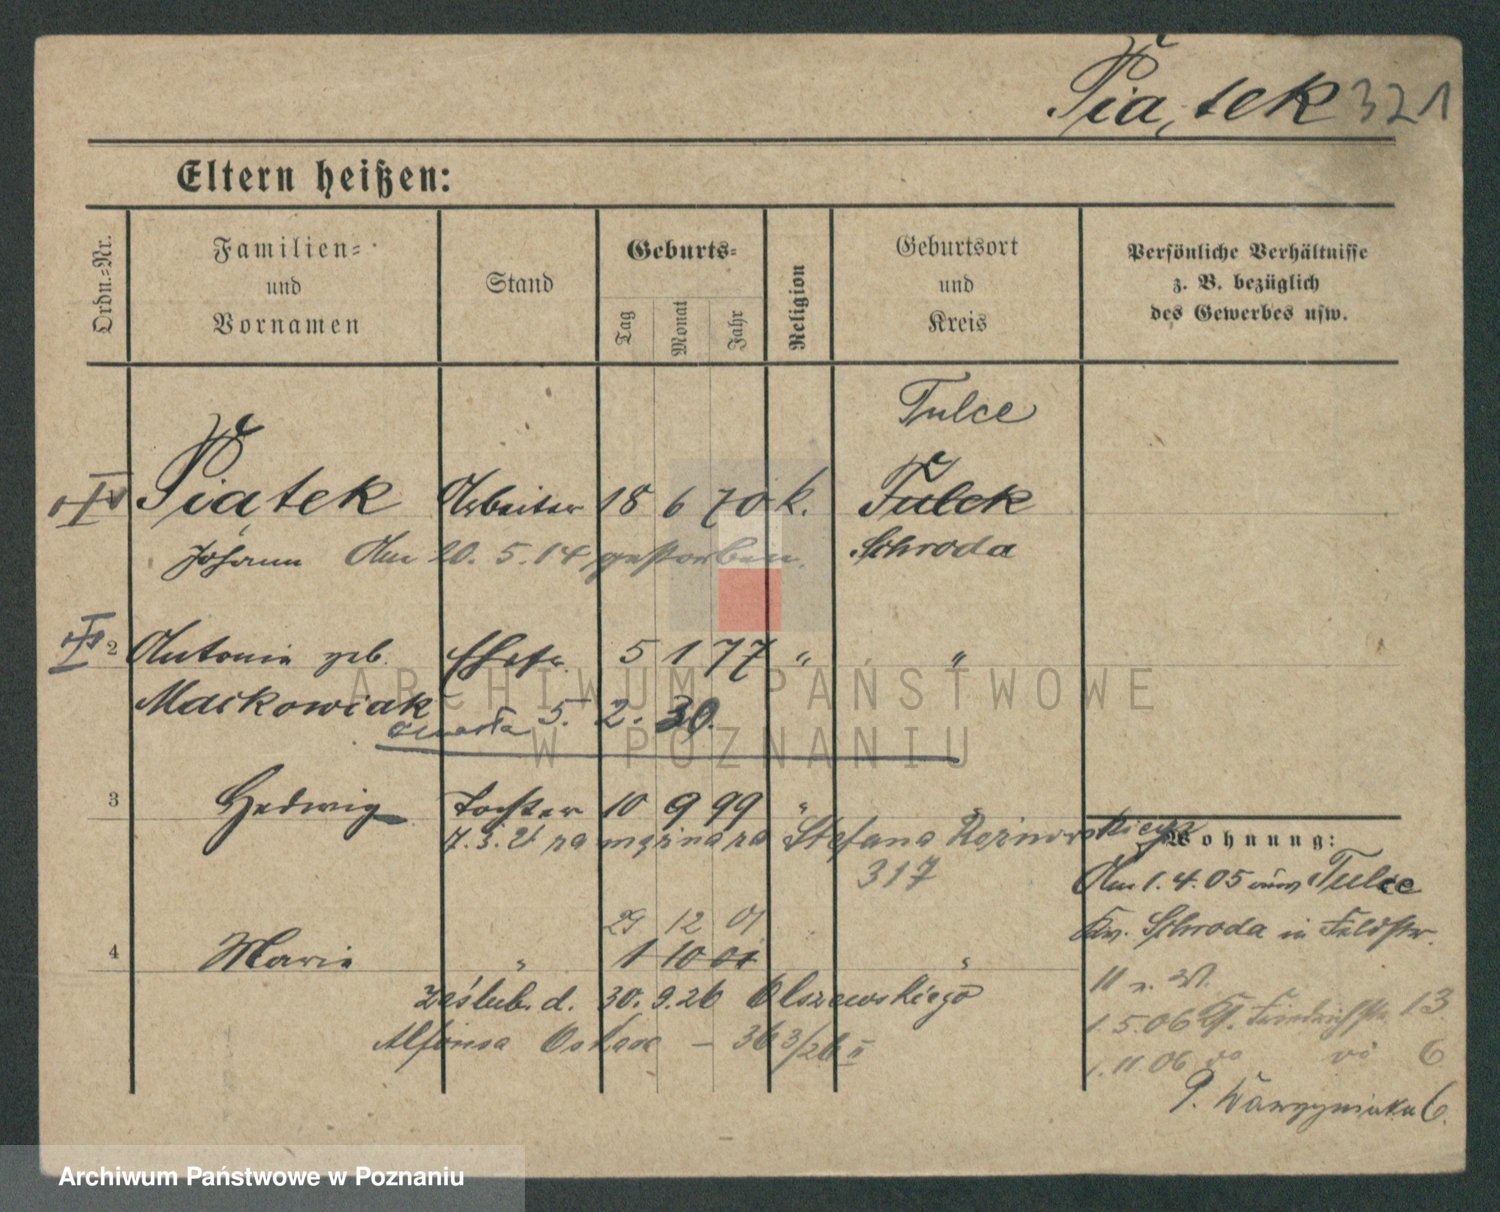 Piątek 321
Eltern heißen:
Ordn.=Nr.
Familien=
und
Vornamen
Stand
Geburts=
Tag
Monat
Jahr
Religion
Geburtsort
und
Kreis
Persönliche Verhältnisse
z. B. bezüglich
des Gewerbes usw.
Tulce
Piątek Arbeiter 18 6 70 k. Tulck
Johann Am 20. 5. 14 gestorben. Schroda
2 Antonie geb. Ehefr. 5 1 77 " "
Maćkowiak
zmarła 5. 2. 30.
3 Hedwig Tochter 10 9 99 "
za mężna za Stefana Reżnowskiego
317
Wohnung:
Am 1. 4. 05 von Tulce
Kr. Schroda in Feldstr.
29 12 01
4 Marie " 1 10 01 "
11 n. W.
zaślub. d. 30. 9. 26 Olszewskiego
Alfonsa Oskar — 363/26 II
1. 5. 06 Gr. Friedrichstr. 13
1. 11. 06 do do 6
P. Wawrzyniaka 6.
ARCHIWUM PAŃSTWOWE
W POZNANIU
Archiwum Państwowe w Poznaniu